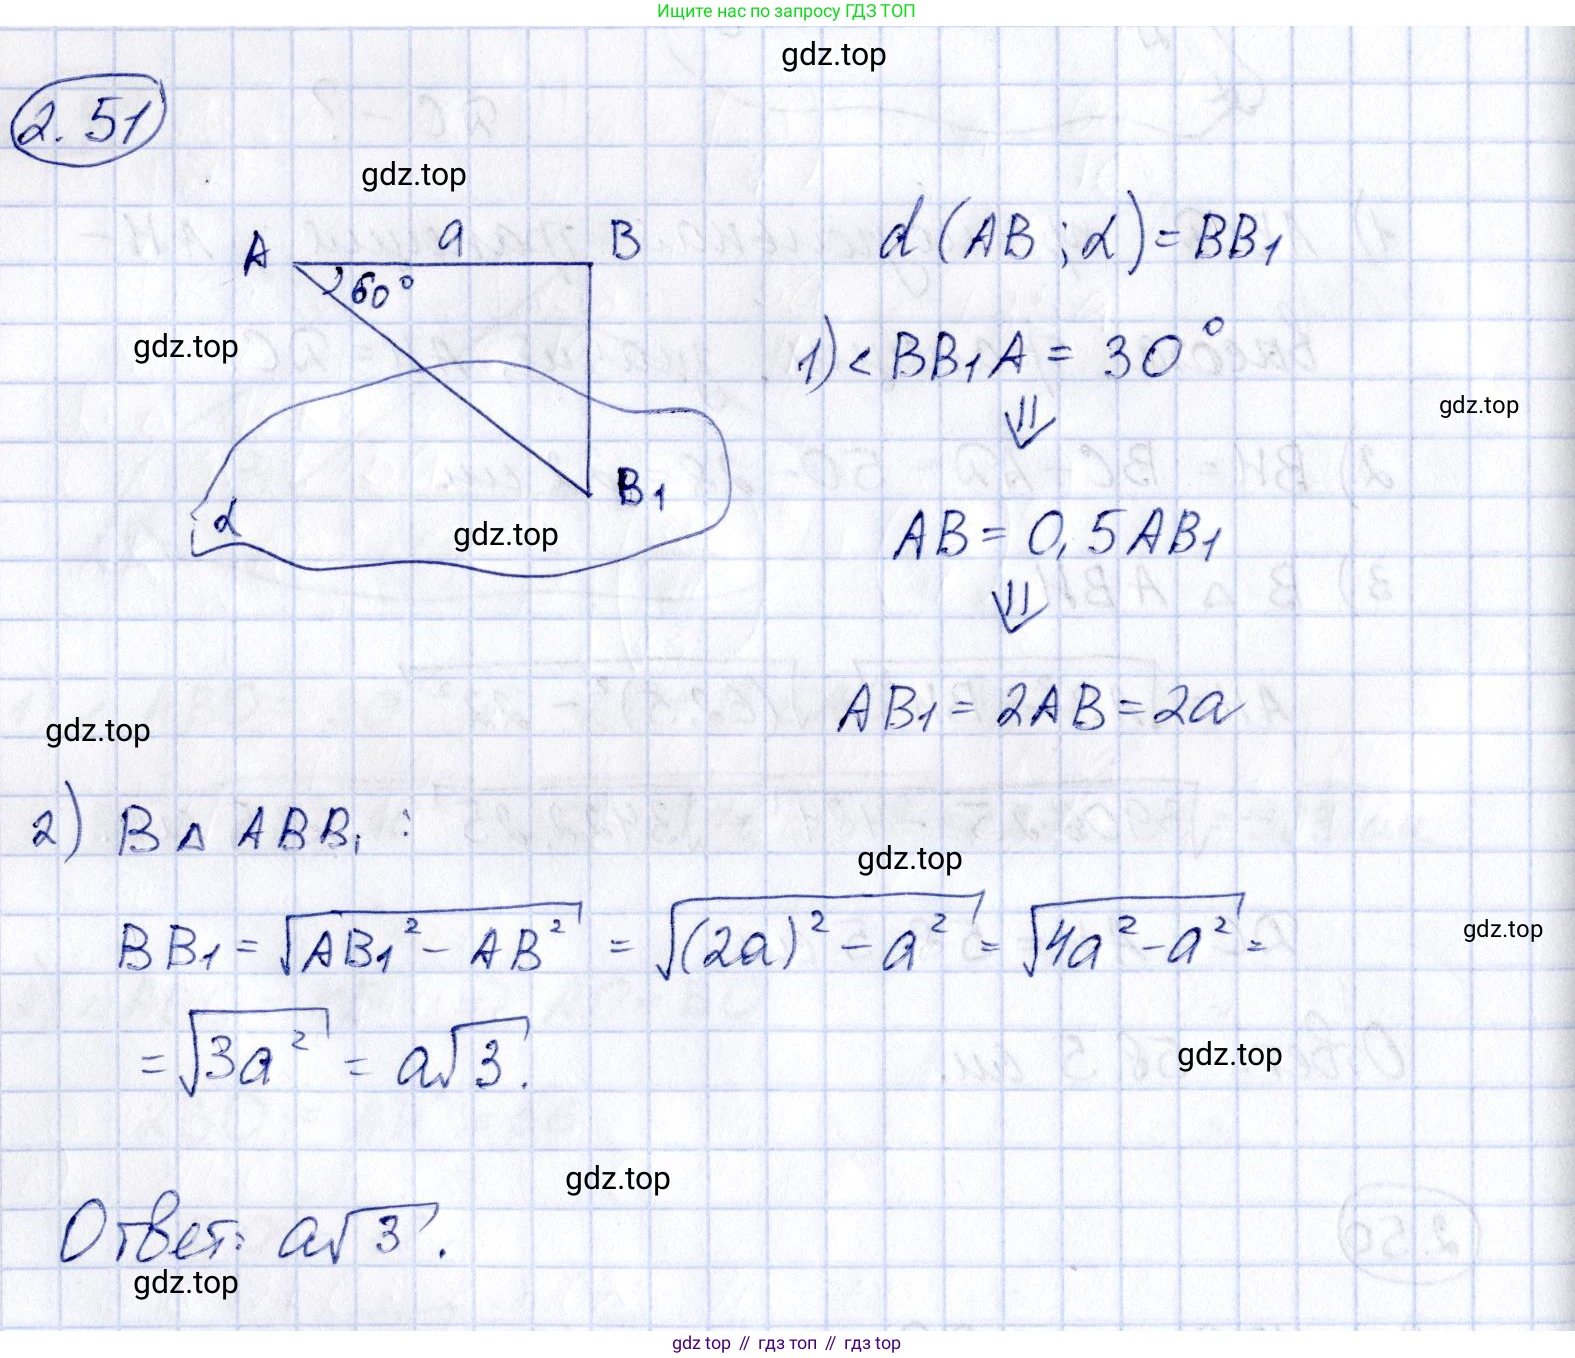 Ищите нас по запросу ГДЗ ТОП
gdz.top
2.51
gdz.top
A a B
60°
d(AB; α) = BB₁
gdz.top
1) < BB₁A = 30°
⇓
gdz.top
B₁
α
gdz.top
AB = 0,5AB₁
⇓
AB₁ = 2AB = 2a
gdz.top
2) В △ ABB₁:
gdz.top
BB₁ = √(AB₁² − AB²) = √((2a)² − a²) = √(4a² − a²) =
gdz.top
= √(3a²) = a√3.
gdz.top
gdz.top
Ответ: a√3.
gdz.top
gdz top // гдз топ // гдз top